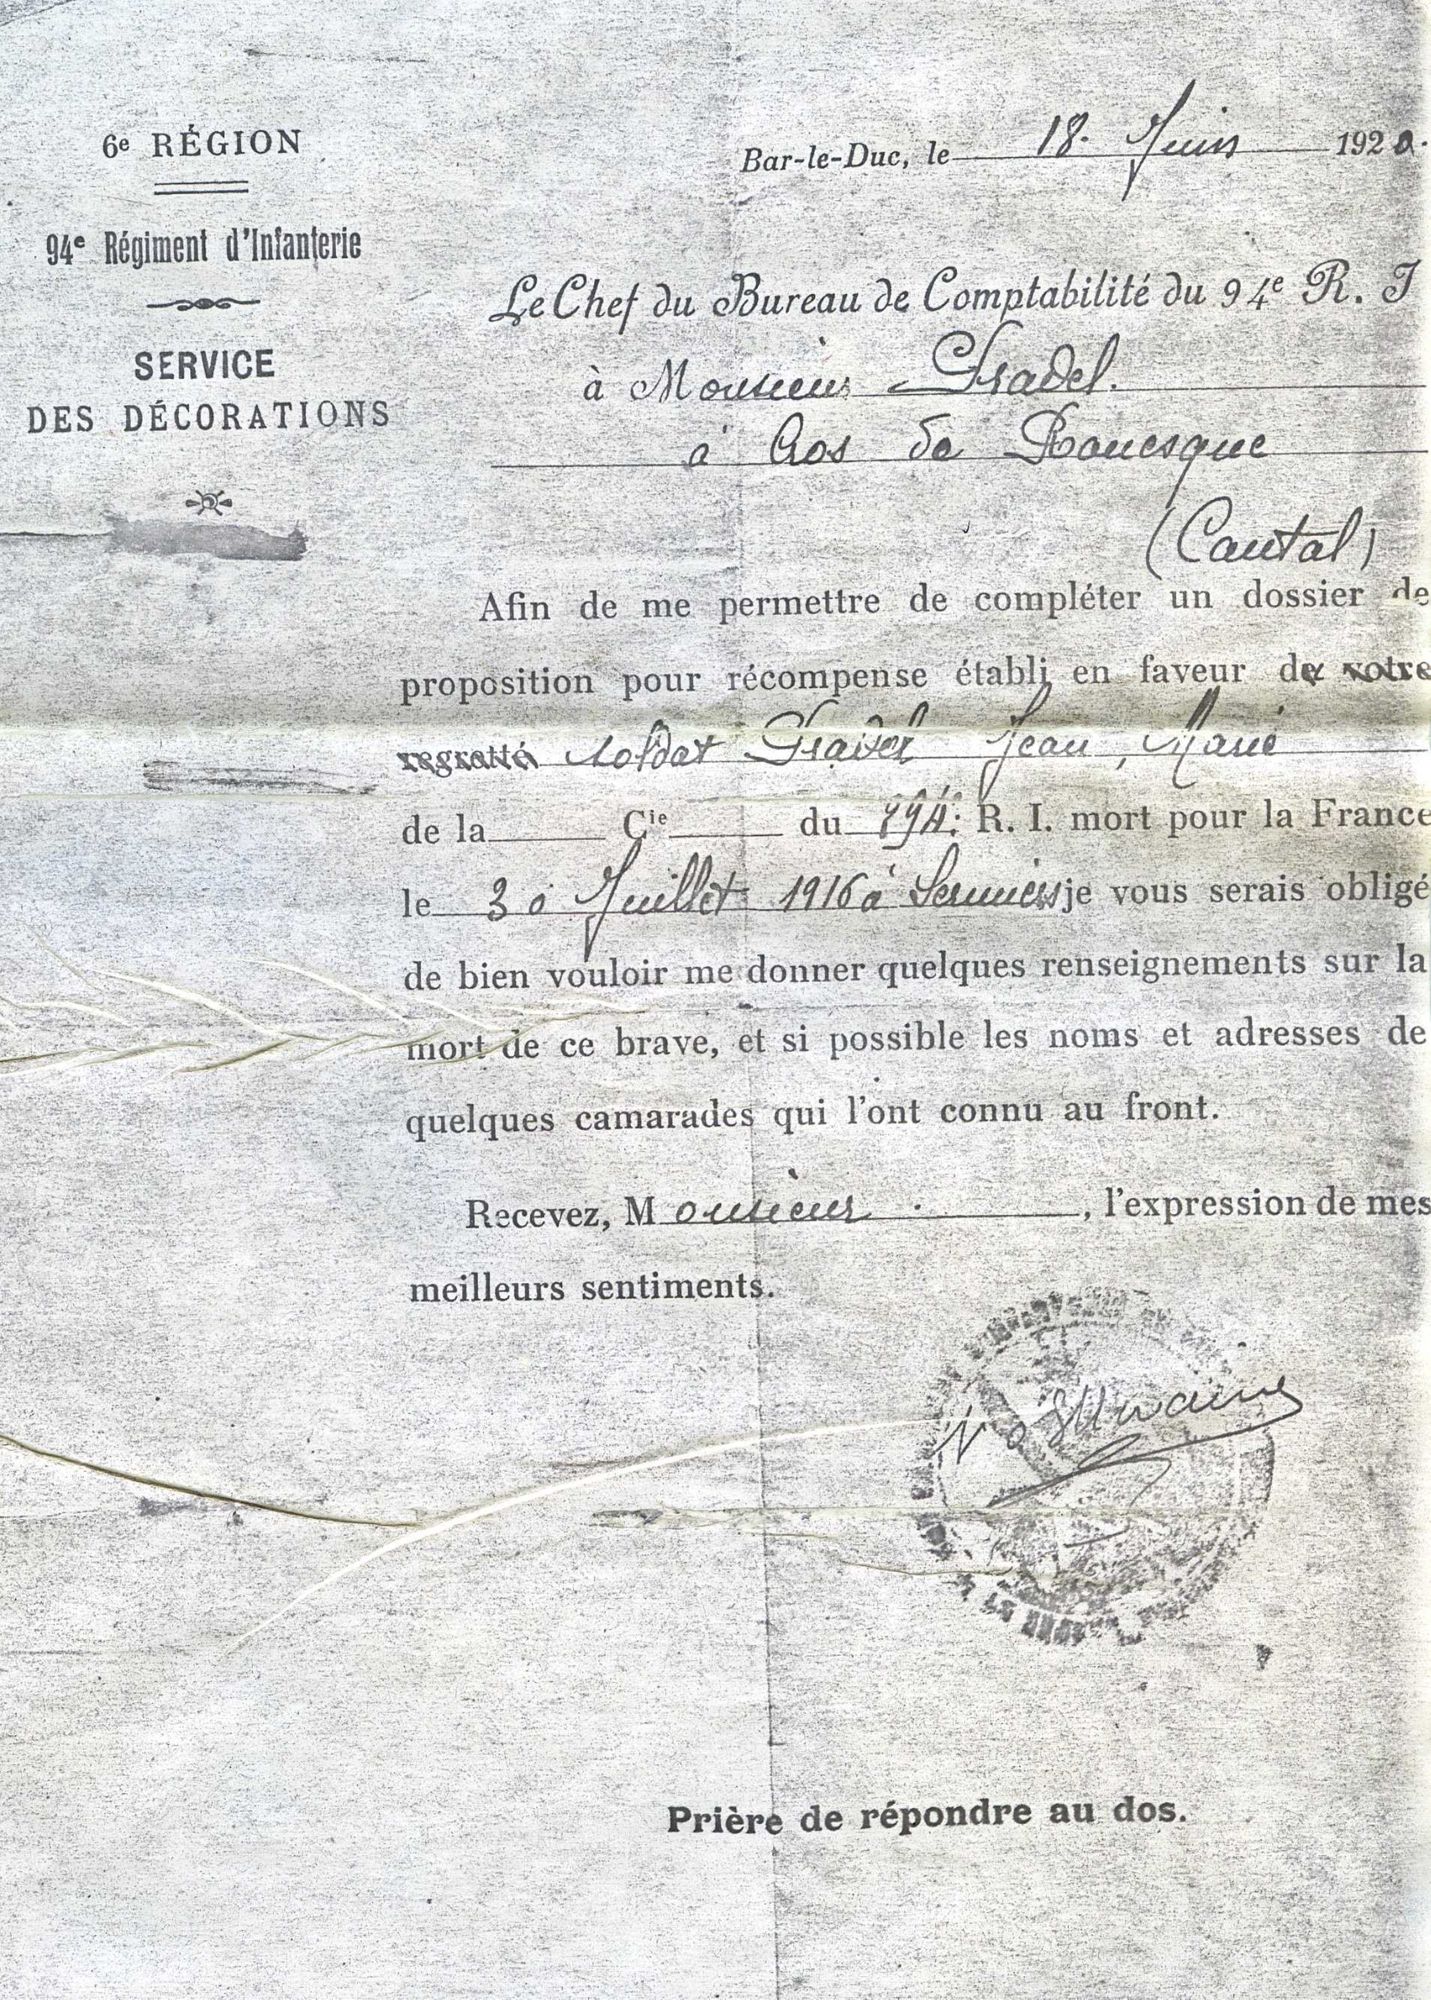 6e RÉGION
Bar-le-Duc, le 18 Juin 1920.
94e Régiment d'Infanterie
SERVICE
DES DÉCORATIONS
Le Chef du Bureau de Comptabilité du 94e R. I
à Monsieur Pradel.
à Cros de Ronesque
(Cantal)
Afin de me permettre de compléter un dossier de
proposition pour récompense établi en faveur de votre
regretté soldat Pradel Jean, Marie
de la Cie du 294: R. I. mort pour la France
le 30 Juillet 1916 à je vous serais obligé
de bien vouloir me donner quelques renseignements sur la
mort de ce brave, et si possible les noms et adresses de
quelques camarades qui l'ont connu au front.
Recevez, Monsieur, l'expression de mes
meilleurs sentiments.
Prière de répondre au dos.